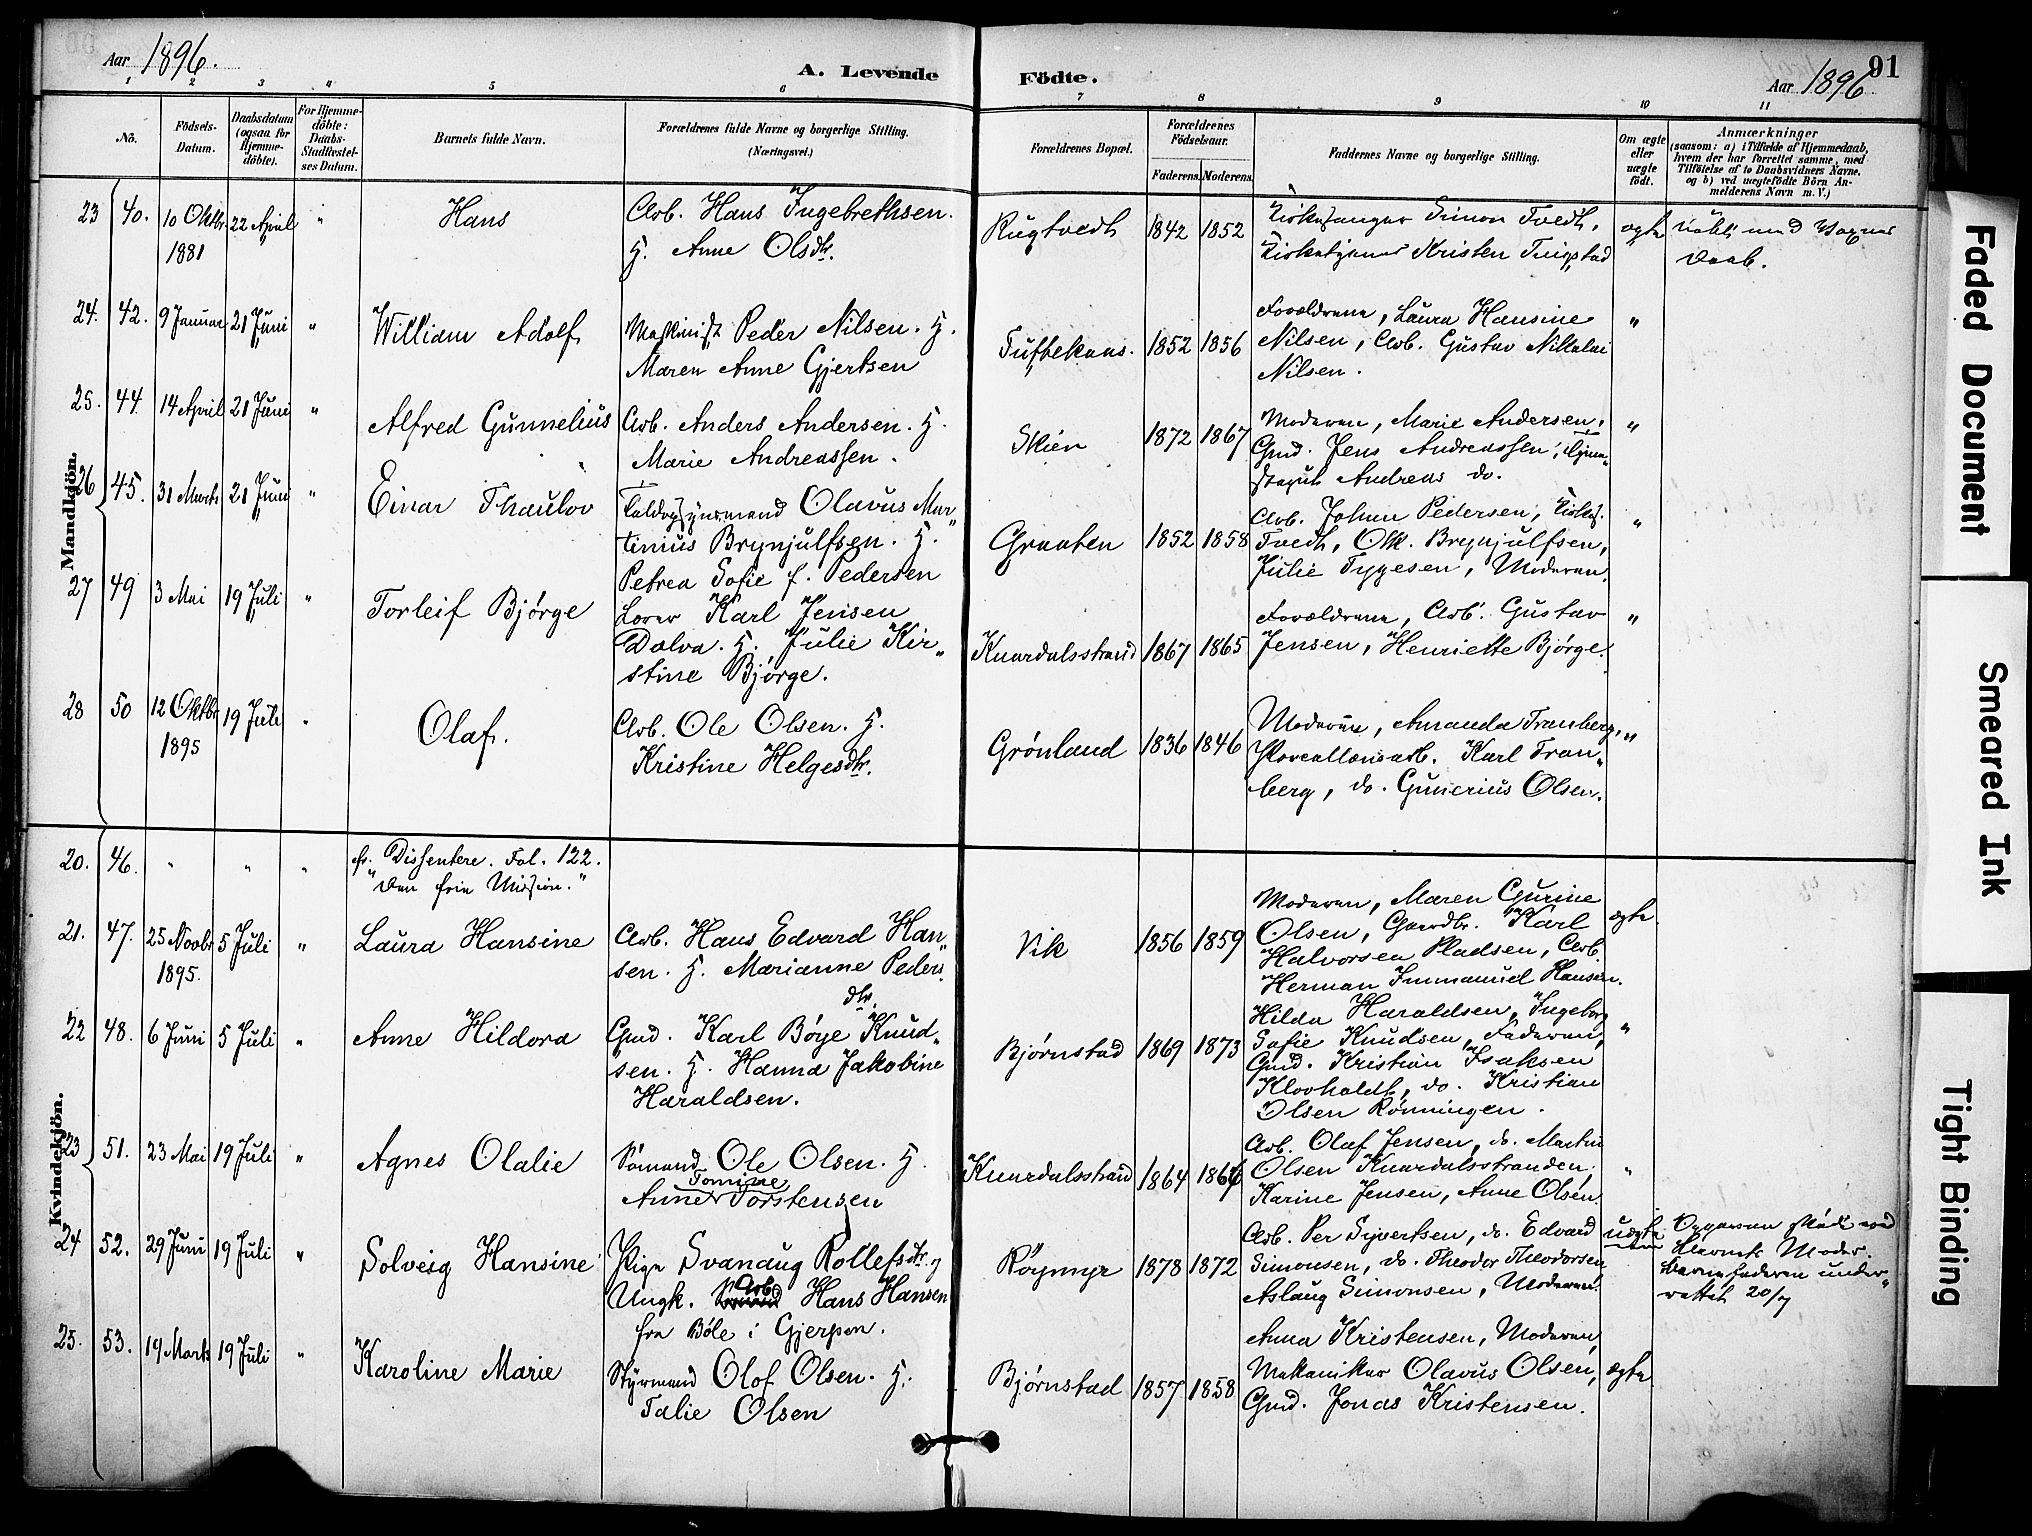 Aar 1896.
A. Levende Födte.
Aar 1896
91
1 2 3 4 5 6 7 8 9 10 11
No.
Födsels-Datum.
Daabsdatum (ogsaa for Hjemme-döbte).
For Hjemme-döbte: Daabs-Stadfæstelses Datum.
Barnets fulde Navn.
Forældrenes fulde Navne og borgerlige Stilling. (Næringsvei.)
Forældrenes Bopæl.
Forældrenes Födselsaar.
Faderens. Moderens.
Faddernes Navne og borgerlige Stilling.
Om ægte eller uægte födt.
Anmærkninger
(saasom: a) i Tilfælde af Hjemmedaab,
hvem der har forrettet samme, med
Tilföielse af to Daabsvidners Navne.
og b) ved uægtefödte Börn An-
melderens Navn m. V.)
Mandkjön.
23 40. 10 Oktbr. 1881 22 April " Hans
Arb. Hans Ingebrethsen.
H. Anne Olsdtr.
Rugtvedt 1842 1852
Kirkesanger Simon Tvedt,
Kirketjener Kristen Tuigstad
ægte
døbt med Voxnes
Daab.
24. 42. 9 Januar 21 Juni " William Adolf
Maskinist Peder Nilsen. H.
Maren Anne Gjertsen
Tuftekaas. 1852 1856
Forældrene, Laura Hansine
Nilsen, Arb. Gustav Nikolai
Nilsen.
"
25. 44. 14 April 21 Juni " Alfred Gunnelius
Arb. Anders Andersen. H.
Marie Andreassen.
Skien 1872 1867
Moderen, Marie Andersen,
Gmd. Jens Andreassen,
Andreas do.
"
26 45. 31 Marts 21 Juni " Einar Thaulov
Toldopsynsmand Olavus Mar-
tinius Brynjulfsen. H.
Petrea Sofie f. Pedersen
Graaten 1852 1858
Arb. Johan Pedersen, Kirkes.
Tvedt, Olk. Brynjulfsen,
Julie Tygesen, Moderen.
"
27 49 3 Mai 19 Juli " Torleif Bjørge
Lærer Karl Jensen
Dolva. H. Julie Kir-
stine Bjørge.
Knardalsstrand 1867 1865
Forældrene, Arb. Gustav
Jensen, Henriette Bjørge.
"
28 50 12 Oktbr 1895 19 Juli " Olaf.
Arb. Ole Olsen. H.
Kristine Helgesdtr.
Grønland 1836 1846
Moderen, Amanda Tranberg,
Porcellænsarb. Karl Tran-
berg, do. Gunerius Olsen.
"
Kvindekjön.
20. 46. " " " cfr. Dissentere. Fol. 122.
"Den frie Mission."
21. 47. 25 Novbr 1895. 5 Juli " Laura Hansine
Arb. Hans Edvard Han-
sen. H. Marianne Peders
dtr.
Vik 1856 1859
Moderen, Maren Gurine
Olsen, Gaardbr. Karl
Halvorsen Pladsen, Arb.
Herman Immanuel Hansen.
ægte
22 48. 6 Juni 5 Juli " Anne Hildora
Gmd. Karl Bøye Knud-
sen. H. Hanna Jakobine
Haraldsen.
Bjørnstad 1869 1873
Hilda Haraldsen, Ingeborg
Sofie Knudsen, Faderen,
Gmd. Kristian Isaksen
Klovholdt, do. Kristian
Olsen Rønningen.
"
23 51. 23 Mai 19 Juli " Agnes Olalie
Sømand Ole Olsen. H.
Tomine
Anne Torstensen
Knardalsstrand 1864 1866
Arb. Olaf Jensen, do. Martin
Olsen Knardalsstranden,
Karine Jensen, Anne Olsen.
"
24 52. 29 Juni 19 Juli " Solveig Hansine
Pige Svanaug Rollefsdtr. og
Ungk. Arb. Hans Hansen
fra Böle i Gjerpen.
Røymyr 1878 1872
Arb. Per Syvertsen, do. Edvard
Simonsen, do. Theodor Theodorsen
Aslaug Simonsen, Moderen.
uægte
Opgaven skede ved
Barnets Moder.
Barnefaderen under-
rettet 20/7
25. 53. 19 Marts 19 Juli " Karoline Marie
Styrmand Olof Olsen. H.
Talie Olsen
Bjørnstad 1857 1858
Anna Kristensen, Moderen,
Mekaniker Olavus Olsen,
Gmd. Jonas Kristensen.
ægte
Faded Document
Smeared Ink
Tight Binding